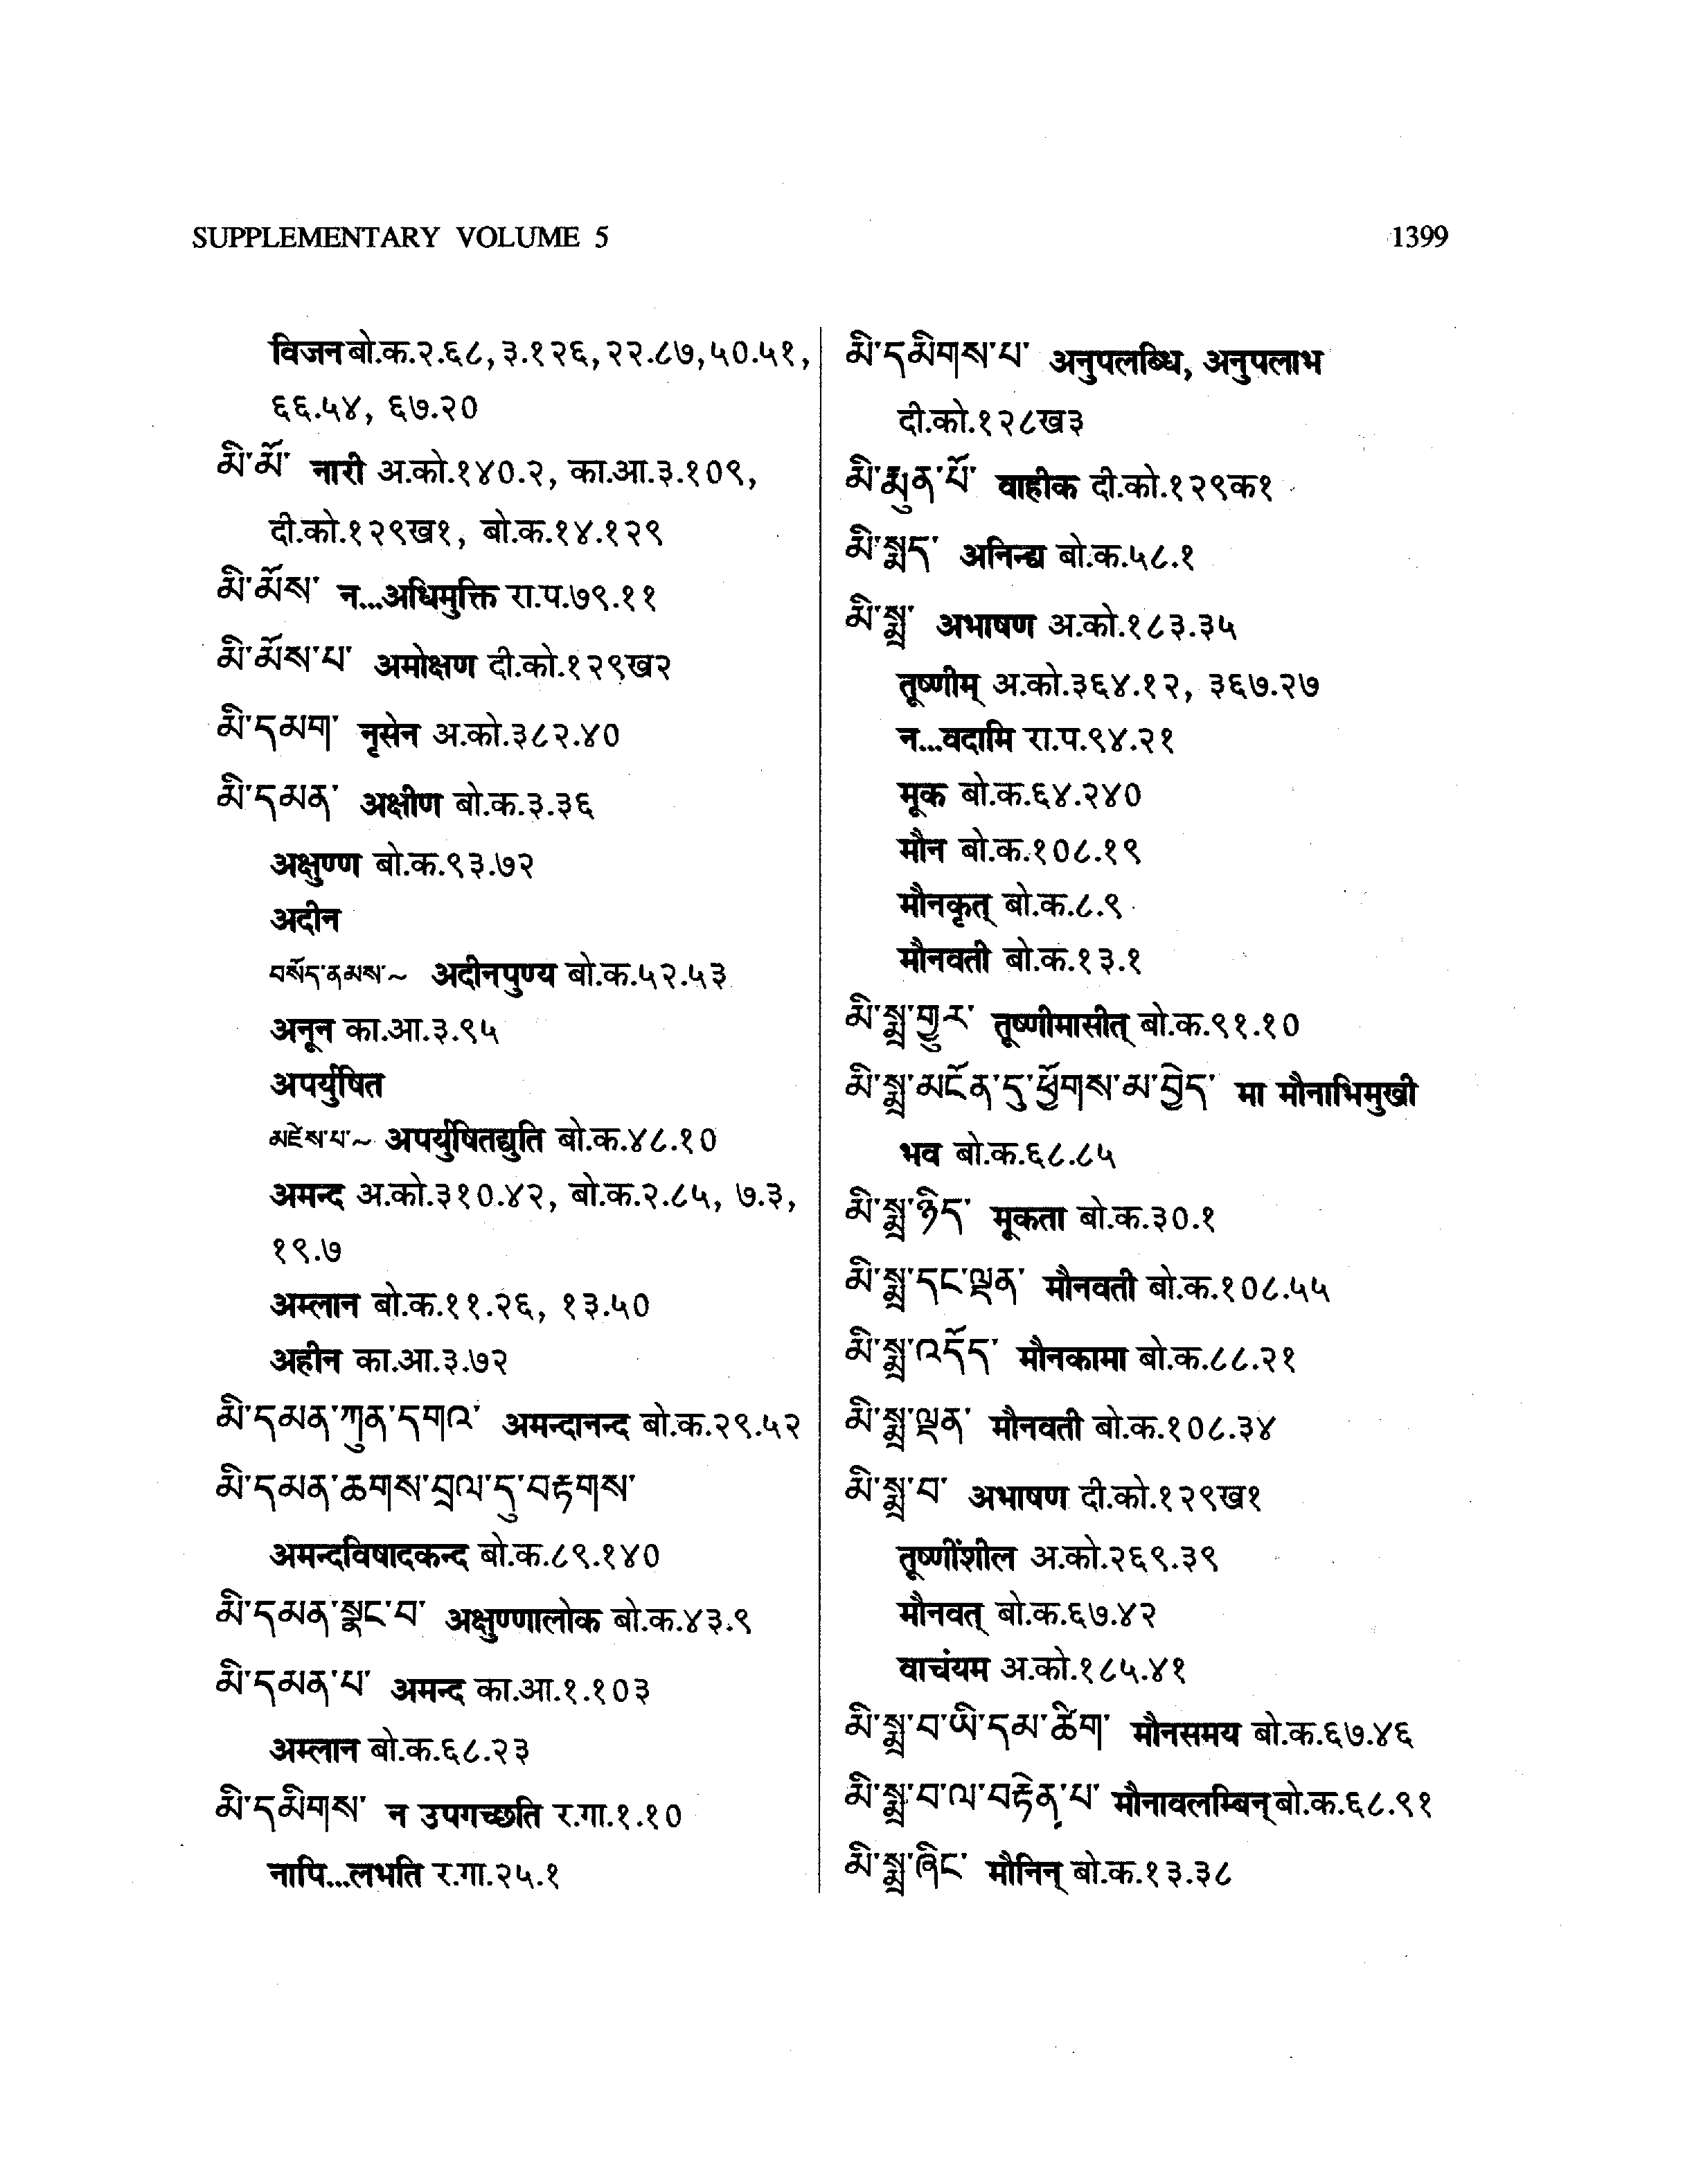 SUPPLEMENTARY VOLUME 5 1399
विजन बो.क.२.६८, ३.१२६, २२.८७, ५०.५१,
६६.५४, ६७.२०
མི་མོ་ नारी अ.को.१४०.२, का.आ.३.१०९,
दी.को.१२९ख१, बो.क.१४.१२९
མི་མོས་ न...अधिमुक्ति रा.प.७९.११
མི་མོས་པ་ अमोक्षण दी.को.१२९ख२
མི་དམག་ नृसेन अ.को.३८२.४०
མི་དམན་ अक्षीण बो.क.३.३६
अक्षुण्ण बो.क.९३.७२
अदीन
བསོད་ནམས་~ अदीनपुण्य बो.क.५२.५३
अनून का.आ.३.९५
अपर्युषित
མཛེས་པ་~ अपर्युषितद्युति बो.क.४८.१०
अमन्द अ.को.३१०.४२, बो.क.२.८५, ७.३,
१९.७
अम्लान बो.क.११.२६, १३.५०
अहीन का.आ.३.७२
མི་དམན་ཀུན་དགའ་ अमन्दानन्द बो.क.२९.५२
མི་དམན་ཆགས་བྲལ་དུ་བརྟགས་
अमन्दविषादकन्द बो.क.८९.१४०
མི་དམན་སྣང་བ་ अक्षुण्णालोक बो.क.४३.९
མི་དམན་པ་ अमन्द का.आ.१.१०३
अम्लान बो.क.६८.२३
མི་དམིགས་ न उपगच्छति र.गा.१.१०
नापि...लभति र.गा.२५.१
མི་དམིགས་པ་ अनुपलब्धि, अनुपलाभ
दी.को.१२८ख३
མི་རྨུན་པོ་ वाहीक दी.को.१२९क१
མི་སྨད་ अनिन्द्य बो.क.५८.१
མི་སྨྲ་ अभाषण अ.को.१८३.३५
तूष्णीम् अ.को.३६४.१२, ३६७.२७
न...वदामि रा.प.९४.२१
मूक बो.क.६४.२४०
मौन बो.क.१०८.१९
मौनकृत् बो.क.८.९
मौनवती बो.क.१३.१
མི་སྨྲ་གྱུར་ तूष्णीमासीत् बो.क.९१.१०
མི་སྨྲ་མངོན་དུ་ཕྱོགས་མ་བྱེད་ मा मौनाभिमुखी
भव बो.क.६८.८५
མི་སྨྲ་ཉིད་ मूकता बो.क.३०.१
མི་སྨྲ་དང་ལྡན་ मौनवती बो.क.१०८.५५
མི་སྨྲ་འདོད་ मौनकामा बो.क.८८.२१
མི་སྨྲ་ལྡན་ मौनवती बो.क.१०८.३४
མི་སྨྲ་བ་ अभाषण दी.को.१२९ख१
तूष्णींशील अ.को.२६९.३९
मौनवत् बो.क.६७.४२
वाचंयम अ.को.१८५.४१
མི་སྨྲ་བ་ཡི་དམ་ཚིག་ मौनसमय बो.क.६७.४६
མི་སྨྲ་བ་ལ་བརྟེན་པ་ मौनावलम्बिन् बो.क.६८.९१
མི་སྨྲ་ཞིང་ मौनिन् बो.क.१३.३८